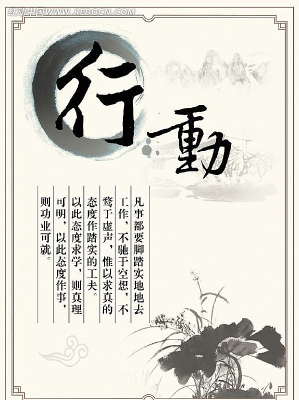 红动中国 WWW.REDOCN.COM
行動
凡事都要脚踏实地地去
工作，不驰于空想，不
骛于虚声，惟以求真的
态度作踏实的工夫。
以此态度求学，则真理
可明，以此态度作事，
则功业可就。